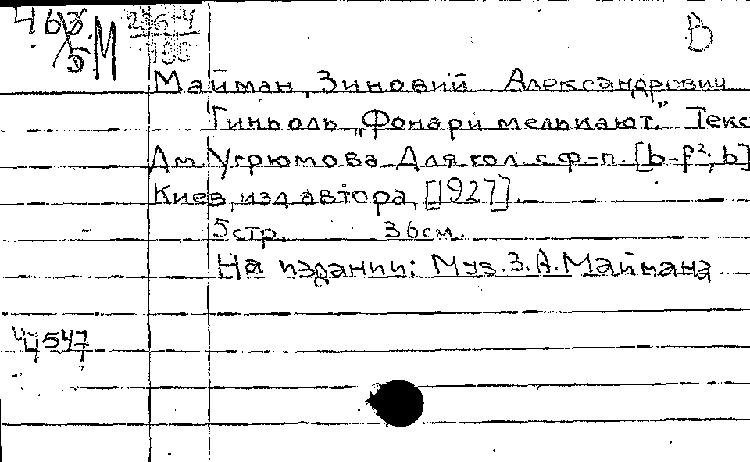 463 236-4
5 M 190
В
Майман, Зиновий Александрович
Гиньоль "Фонари мелькают." Текс
Дм. Угрюмова. Для гол. с ф-п. [b-f²; b]
Киев, изд автора, [1927].
5 стр. 36 см.
На издании: Муз. З. А. Маймана
547